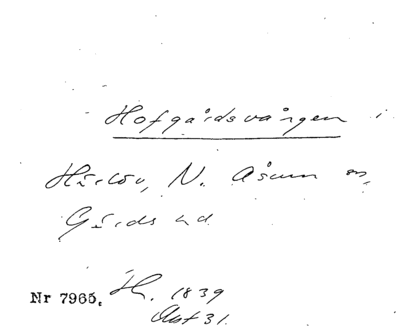 Hofgårdsvången i
Härlöv, N. Åsum sn,
Gärds hd
Nr 7965. H. 1839
Akt 31.